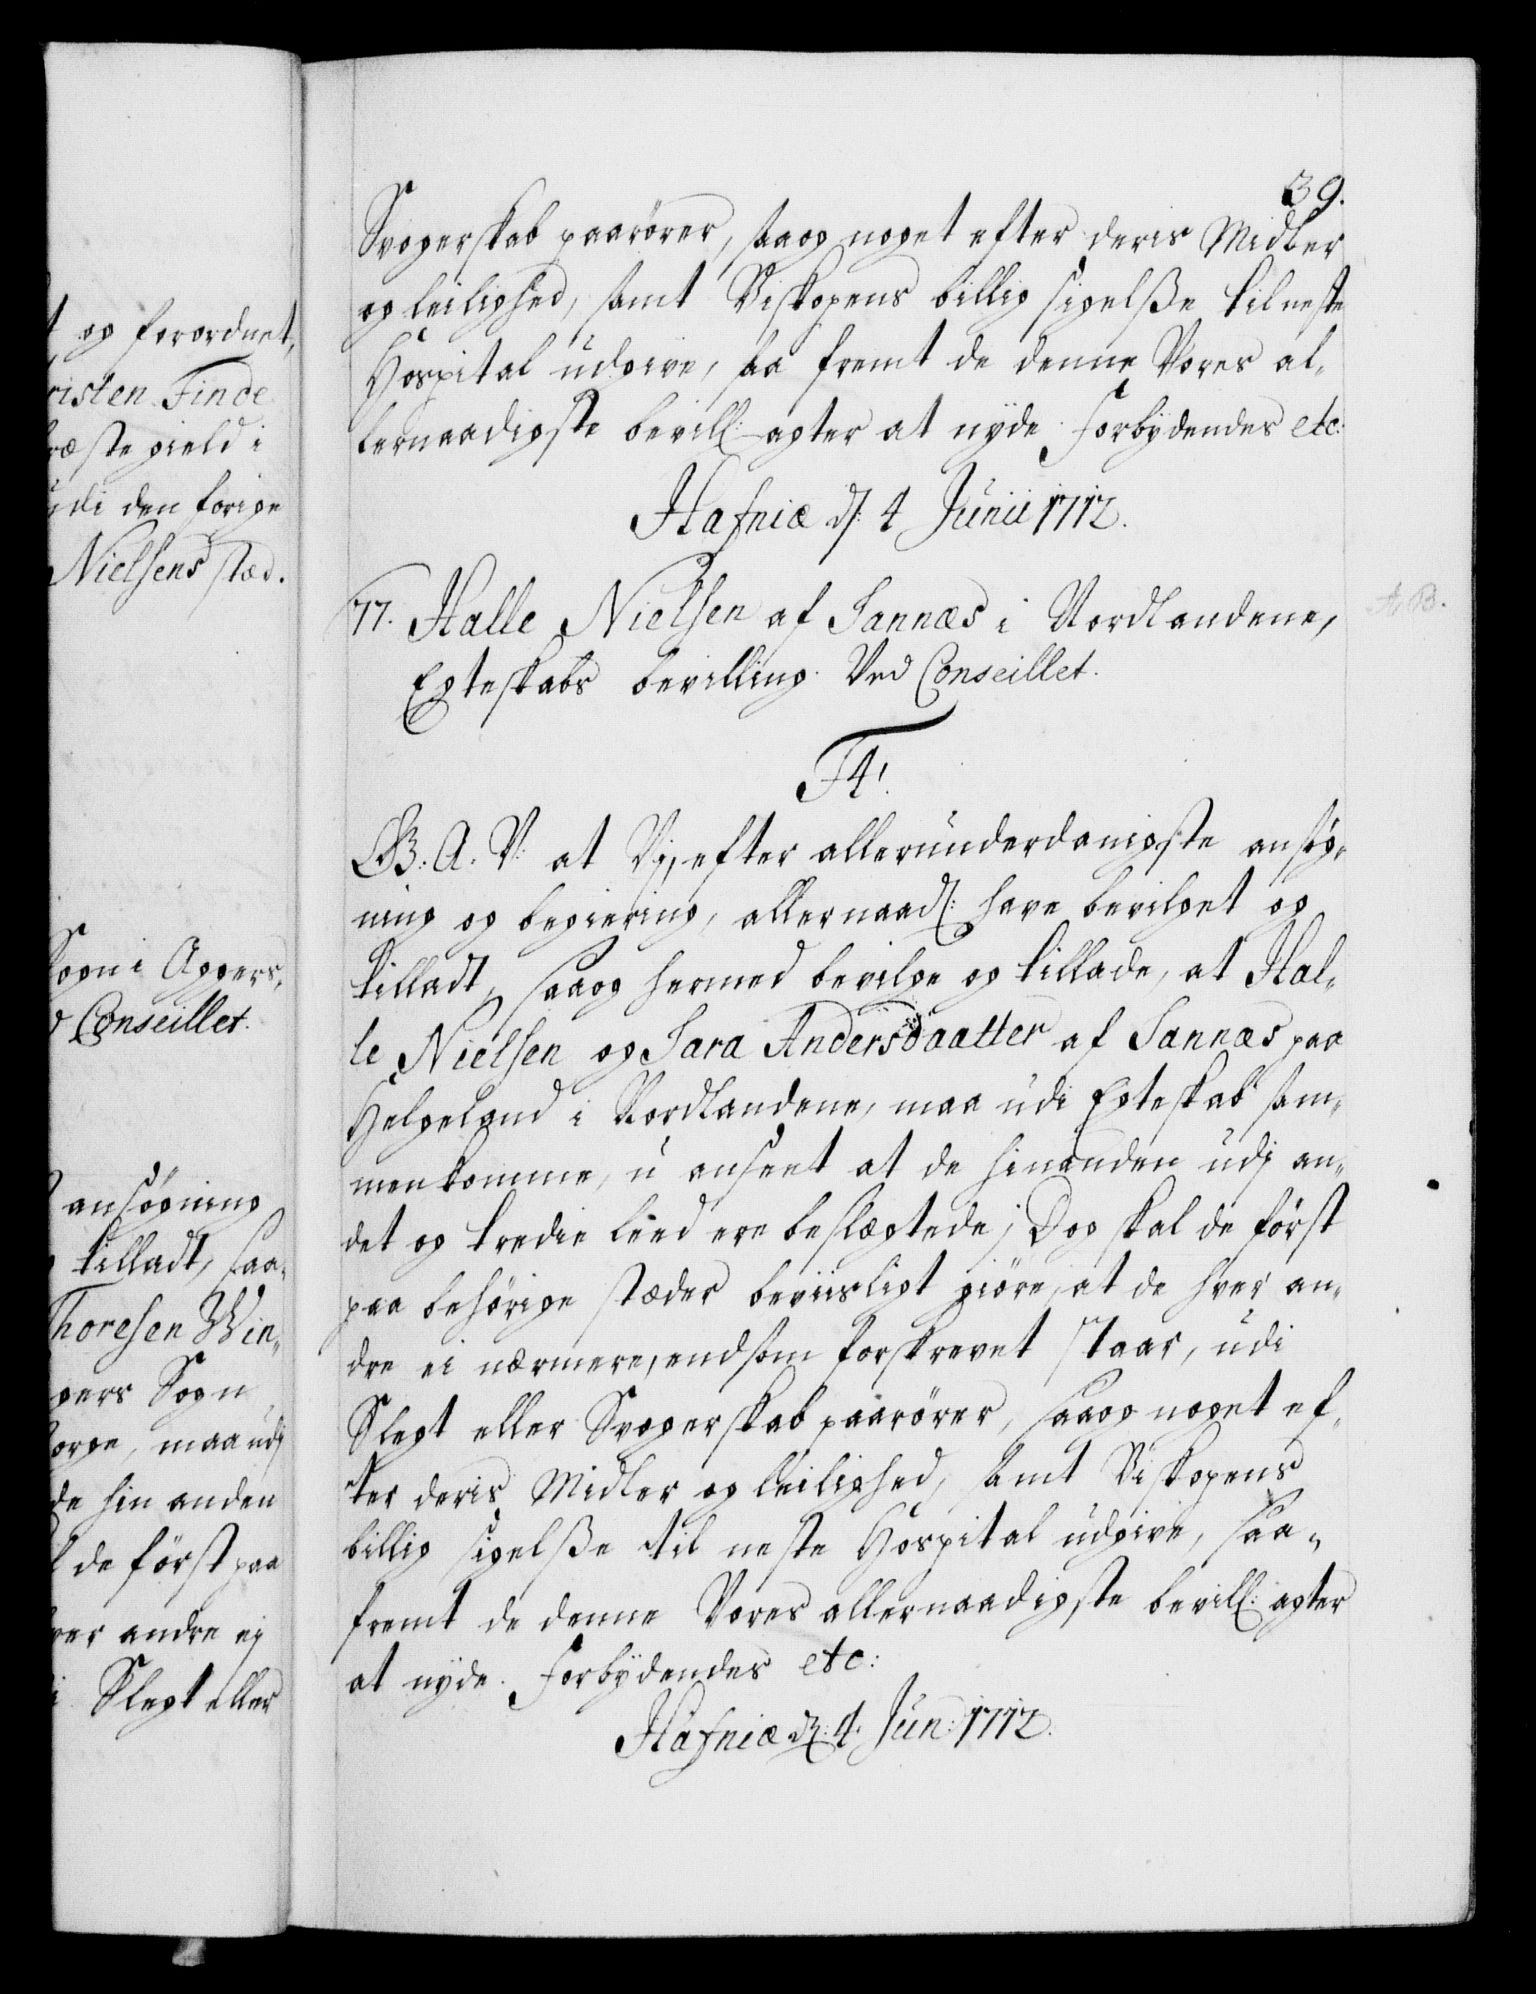 39.
Svogerskab paarörer, saaog noget efter deris Midler
og leilighed, samt Biskopens billig sigelße til neste
Hospital udgive, saa fremt de denne Vores al-
lernaadigste bevill: agter at nyde. Forbydendes etc:
Hafniæ d: 4 Junii 1712.
77. Halle Nielsen af Sannæs i Nordlandene,
Egteskabs bevilling. Ved Conseillet.
F4!
G.B: A. V: at Vj, efter allerunderdanigste ansøg-
ning og begiering, allernaad: have bevilget og
tilladt, saaog hermed bevilge og tillade, at Hal-
le Nielsen og Sara Andersdaatter af Sannæs paa
Helgeland i Nordlandene, maa udi Egteskab sam-
menkomme, u anseet at de hinanden udj an-
det og tredie leed ere beslægtede; Dog skal de först
paa behörige stæder beviisligt giöre, at de hver an-
dre ei nærmere, end som forskrevet staar, udi
Slegt eller Svogerskab paarörer, saaog noget ef-
ter deris Midler og leilighed, samt Biskopens
billig sigelße til neste Hospital udgive, saa-
fremt de denne Vores allernaadigste bevill: agter
at nyde. Forbydendes etc:
Hafniæ d: 4. Jun: 1712.
A. B.
og forordnet,
risten Finde
ræstegield i
udi den forige
Nielsens stæd.
Sogn i Aggers,
Conseillet.
ansögning
tilladt, saa-
Thoresen Win-
gers Sogn
orge, maa udj
de hin anden
de först paa
ver andre ej
i Slegt eller